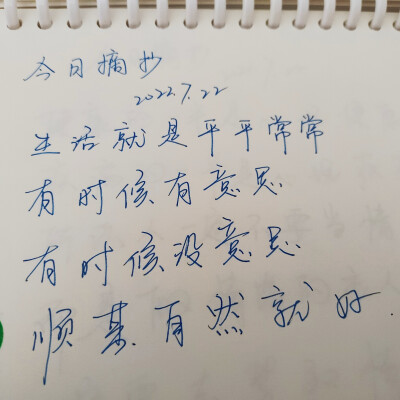 今日摘抄
2022.7.22
生活就是平平常常
有时候有意思.
有时候没意思.
顺其自然就好.